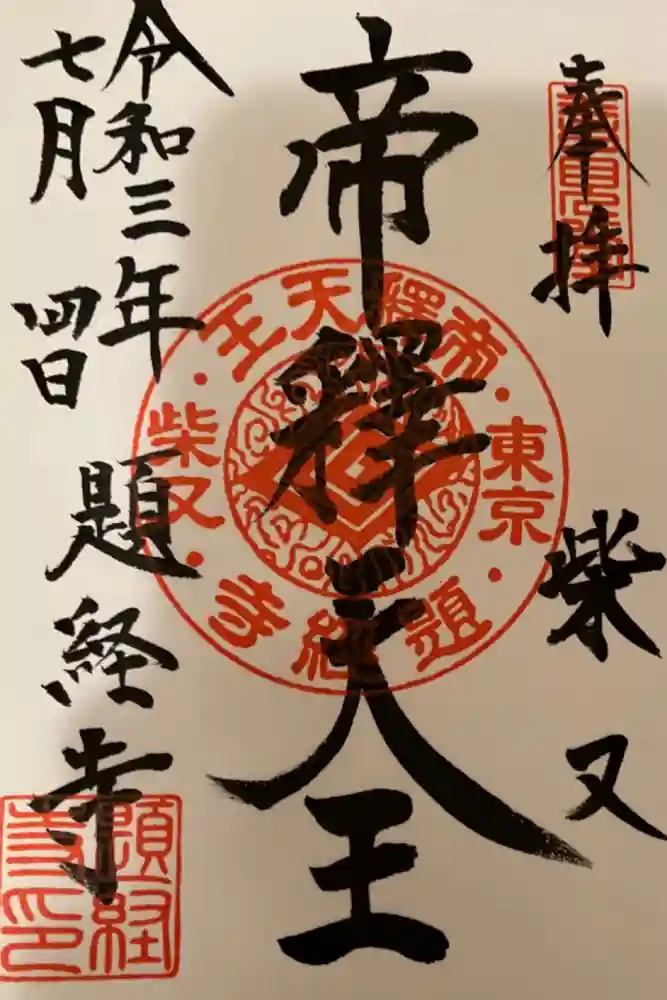 奉拝
柴又
帝釋天王
令和三年
七月四日
題経寺
帝釋天王
東京
柴又
題經寺
題経
寺印